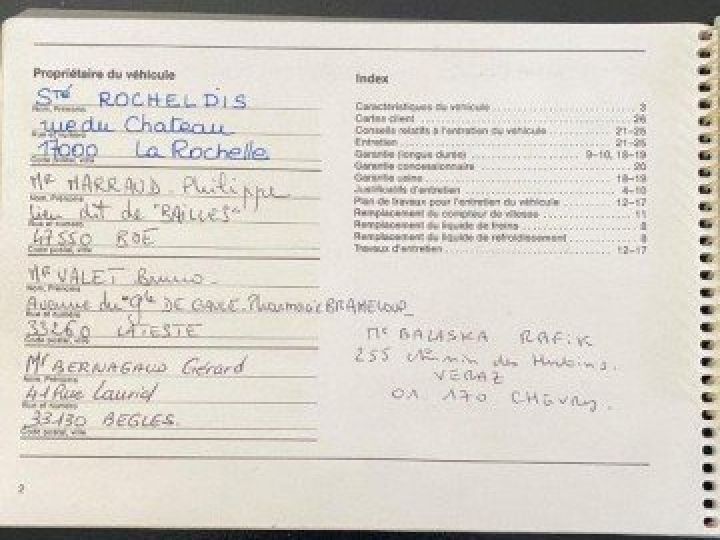 Propriétaire du véhicule
Sté ROCHELDIS
Nom, Prénoms
rue du Chateau
Rue et numéro
17000 La Rochelle
Code postal, ville
Mr MARRAUD Philippe
Nom, Prénoms
Lieu dit de "BAILLES"
Rue et numéro
47550 BOE
Code postal, ville
Mr VALET Bruno
Nom, Prénoms
Avenue du Gle DE GAULE. Pharmacie BRAMELOUP
Rue et numéro
33260 LATESTE
Code postal, ville
Mr BERNAGAUD Gérard
Nom, Prénoms
41 Rue Lauriol
Rue et numéro
33130 BEGLES.
Code postal, ville
Index
Caractéristiques du véhicule 3
Cartes client 26
Conseils relatifs à l'entretien du véhicule 21–25
Entretien 21–25
Garantie (longue durée) 9–10, 18–19
Garantie concessionnaire 20
Garantie usine 18–19
Justificatifs d'entretien 4–10
Plan de travaux pour l'entretien du véhicule 12–17
Remplacement du compteur de vitesse 11
Remplacement du liquide de freins 8
Remplacement du liquide de refroidissement 8
Travaux d'entretien 12–17
Mr BALASKA RAFIK
255 chemin des
VERAZ
01 170 CHEVRY.
2